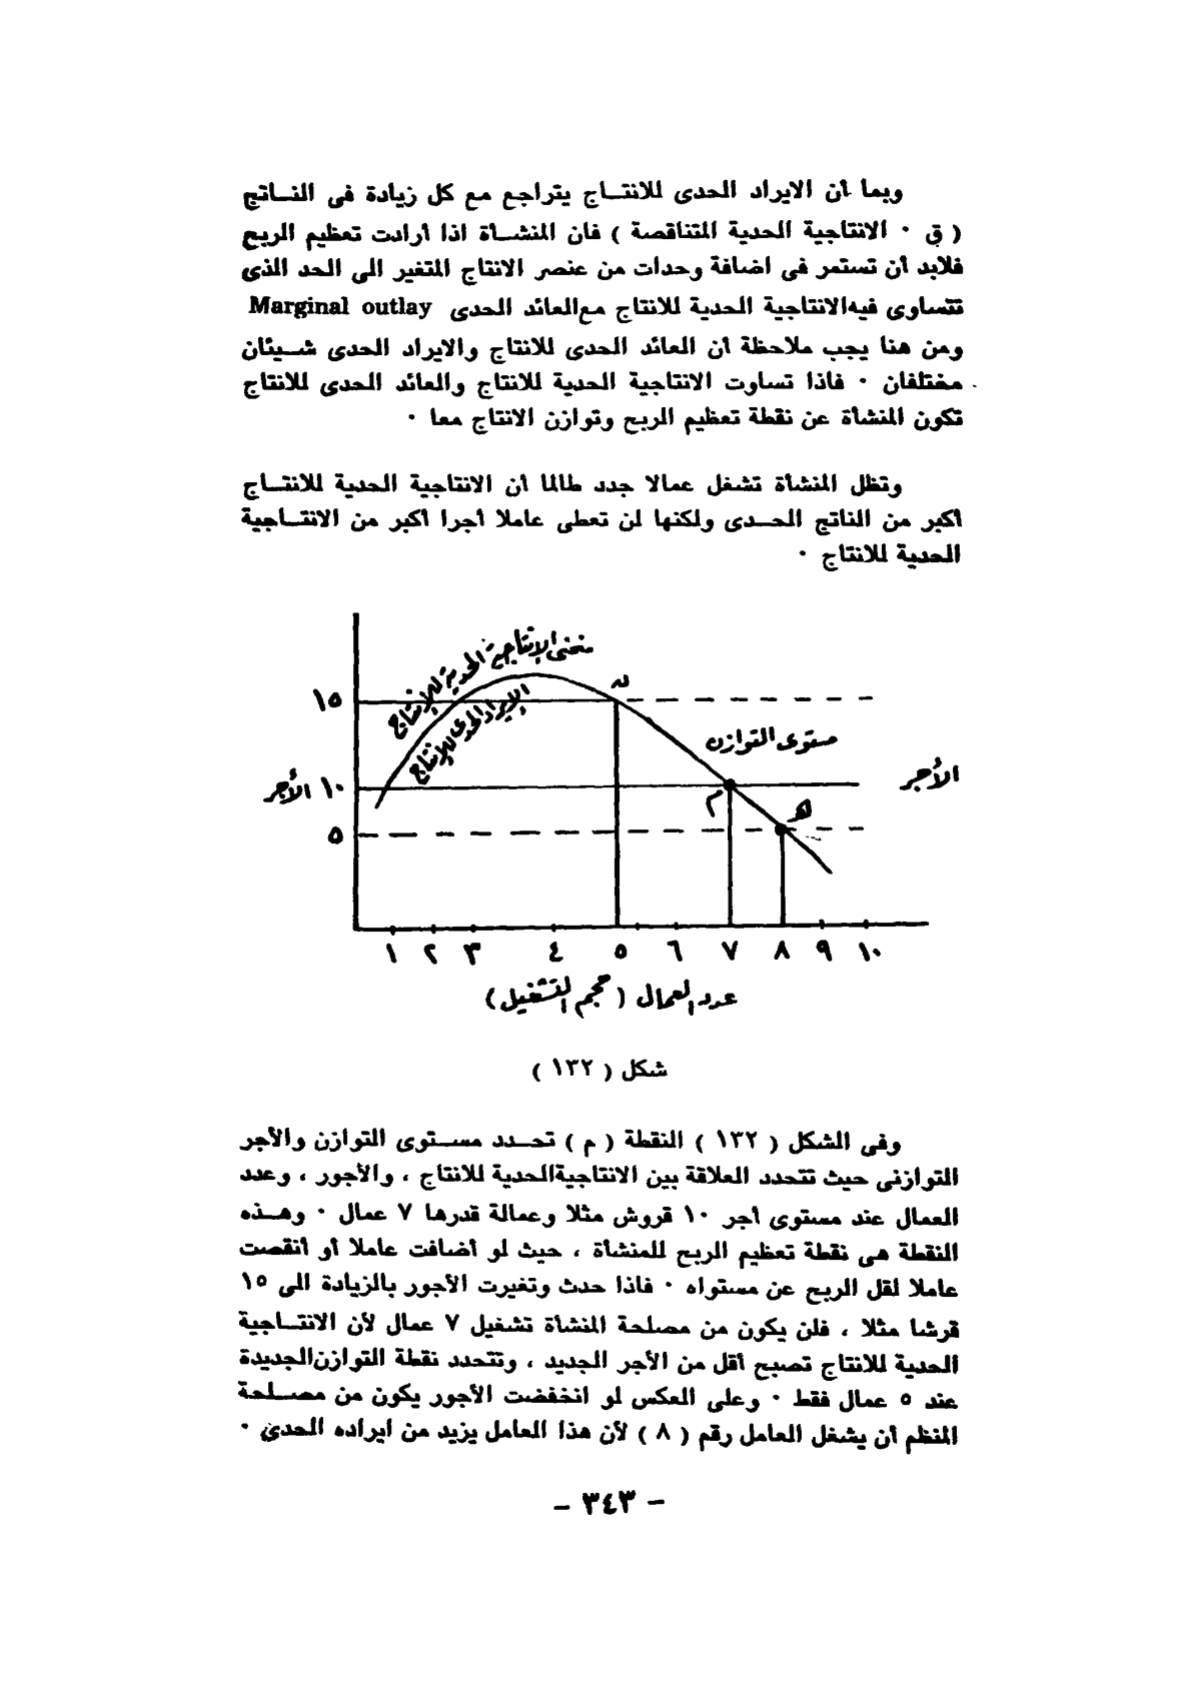 وبما أن الايراد الحدى للانتاج يتراجع مع كل زيادة فى الناتج
( ق ٠ الانتاجية الحدية المتناقصة ) فان المنشأة اذا أرادت تعظيم الربح
فلابد أن تستمر فى اضافة وحدات من عنصر الانتاج المتغير الى الحد الذى
تتساوى فيه الانتاجية الحدية للانتاج مع العائد الحدى Marginal outlay
ومن هنا يجب ملاحظة أن العائد الحدى للانتاج والايراد الحدى شيئان
مختلفان ٠ فاذا تساوت الانتاجية الحدية للانتاج والعائد الحدى للانتاج
تكون المنشأة عن نقطة تعظيم الربح وتوازن الانتاج معا ٠
وتظل المنشأة تشغل عمالا جدد طالما أن الانتاجية الحدية للانتاج
أكبر من الناتج الحدى ولكنها لن تعطى عاملا أجرا أكبر من الانتاجية
الحدية للانتاج ٠
منحنى الإنتاجية الحدية للإنتاج
الإيراد الحدى للإنتاج
١٥
مستوى التوازن
الأجر
١٠ الأجر
م
هـ
٥
١ ٢ ٣ ٤ ٥ ٦ ٧ ٨ ٩ ١٠
عدد العمال ( حجم التشغيل )
شكل ( ١٣٢ )
وفى الشكل ( ١٣٢ ) النقطة ( م ) تحدد مستوى التوازن والأجر
التوازنى حيث تتحدد العلاقة بين الانتاجية الحدية للانتاج ، والأجور ، وعدد
العمال عند مستوى أجر ١٠ قروش مثلا وعمالة قدرها ٧ عمال ٠ وهذه
النقطة هى نقطة تعظيم الربح للمنشأة ، حيث لو أضافت عاملا أو أنقصت
عاملا لقل الربح عن مستواه ٠ فاذا حدث وتغيرت الأجور بالزيادة الى ١٥
قرشا مثلا ، فلن يكون من مصلحة المنشأة تشغيل ٧ عمال لأن الانتاجية
الحدية للانتاج تصبح أقل من الأجر الجديد ، وتتحدد نقطة التوازن الجديدة
عند ٥ عمال فقط ٠ وعلى العكس لو انخفضت الأجور يكون من مصلحة
المنظم أن يشغل العامل رقم ( ٨ ) لأن هذا العامل يزيد من ايراده الحدى ٠
— ٣٤٣ —